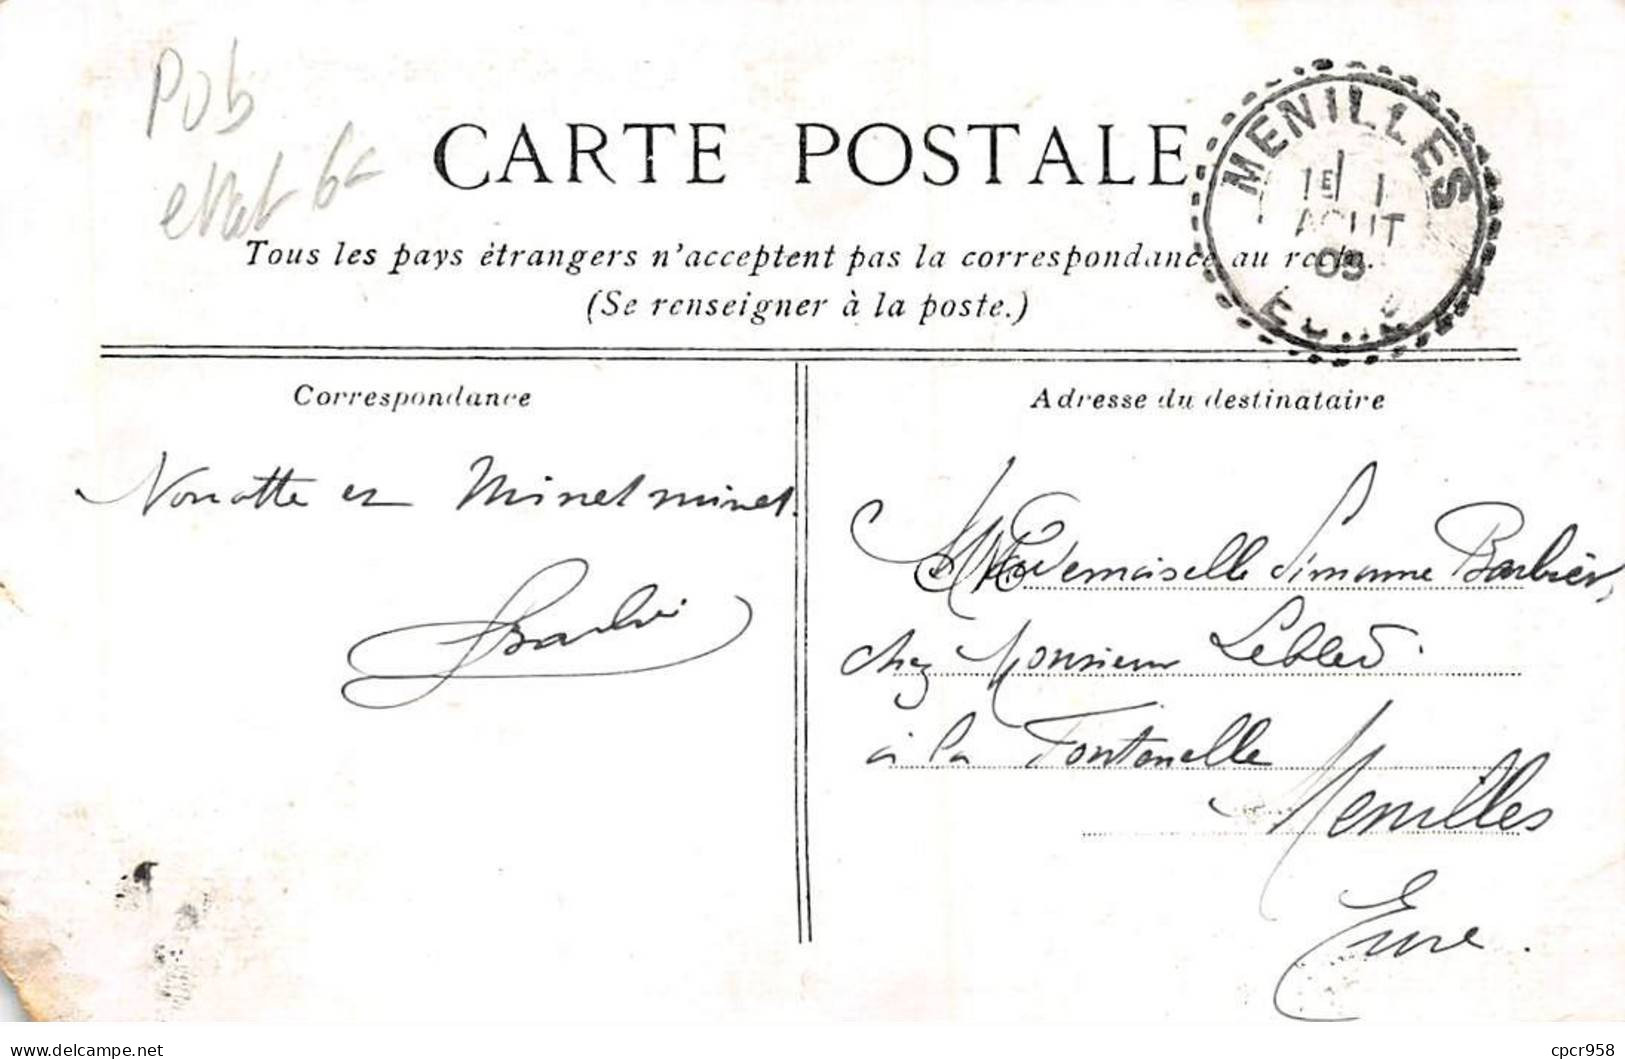 Pub
etat 6c
CARTE POSTALE
MENILLES
1E 1
AOUT
05
EURE
Tous les pays étrangers n'acceptent pas la correspondance au recto.
(Se renseigner à la poste.)
Correspondance
Nonotte et Minet minet.
Barbier
Adresse du destinataire
Mademoiselle Simonne Barbier,
chez Monsieur Lebled.
à la Fontenelle
Menilles
Eure.
delcampe.net
cpcr958